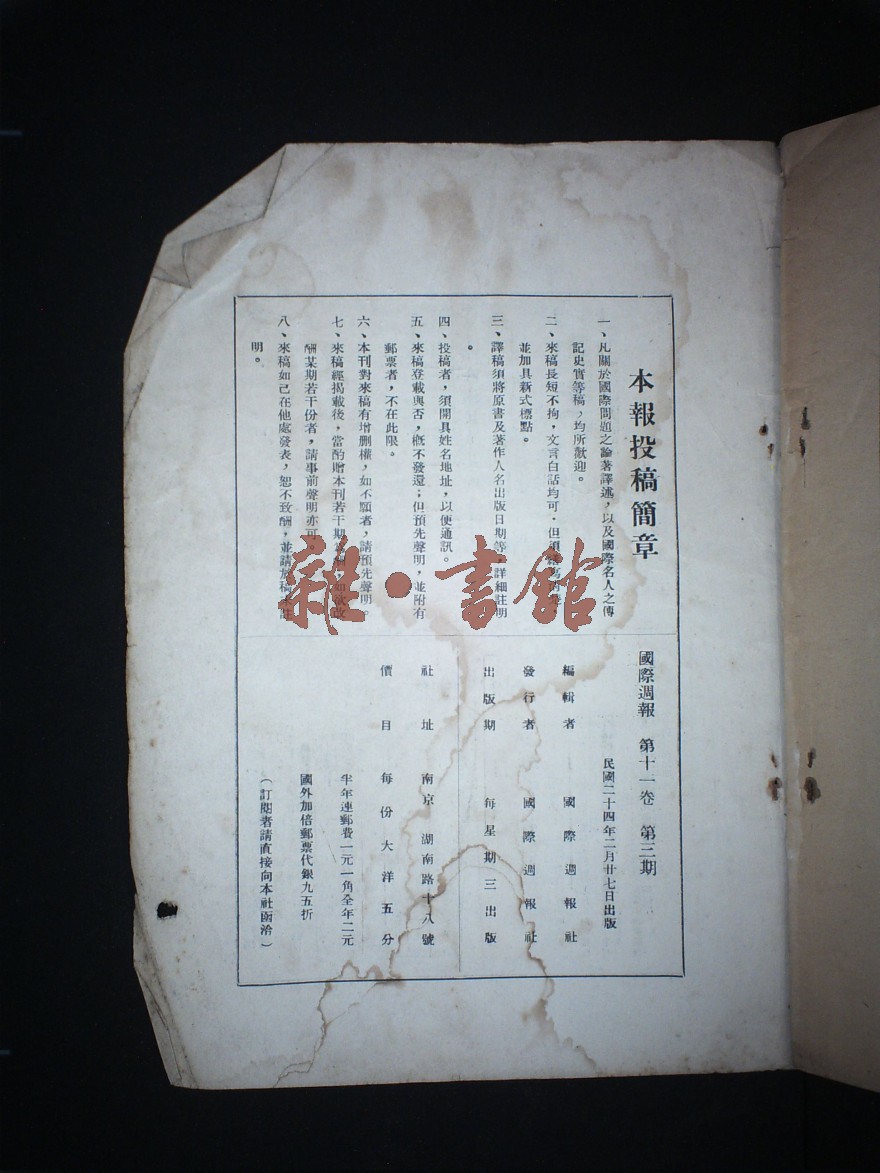 本報投稿簡章
一、凡關於國際問題之論著譯述，以及國際名人之傳
記史實等稿，均所歡迎。
二、來稿長短不拘，文言白話均可．但須
並加具新式標點。
三、譯稿須將原書及著作人名出版日期等，詳細註明
。
四、投稿者，須開具姓名地址，以便通訊。
五、來稿登載與否，概不發還；但預先聲明，並附有
郵票者，不在此限。
六、本刊對來稿有增刪權，如不願者，請預先聲明。
七、來稿經揭載後，當酌贈本刊若干期
酬某期若干份者，請事前聲明亦可
八、來稿如已在他處發表，恕不致酬，並請於稿末註
明。
國際週報　第十一卷　第三期
民國二十四年二月廿七日出版
編輯者　國際週報社
發行者　國際週報社
出版期　每星期三出版
社址　南京湖南路十八號
價目　每份大洋五分
半年連郵費一元一角全年二元
國外加倍郵票代銀九五折
（訂閱者請直接向本社函洽）
雜・書館